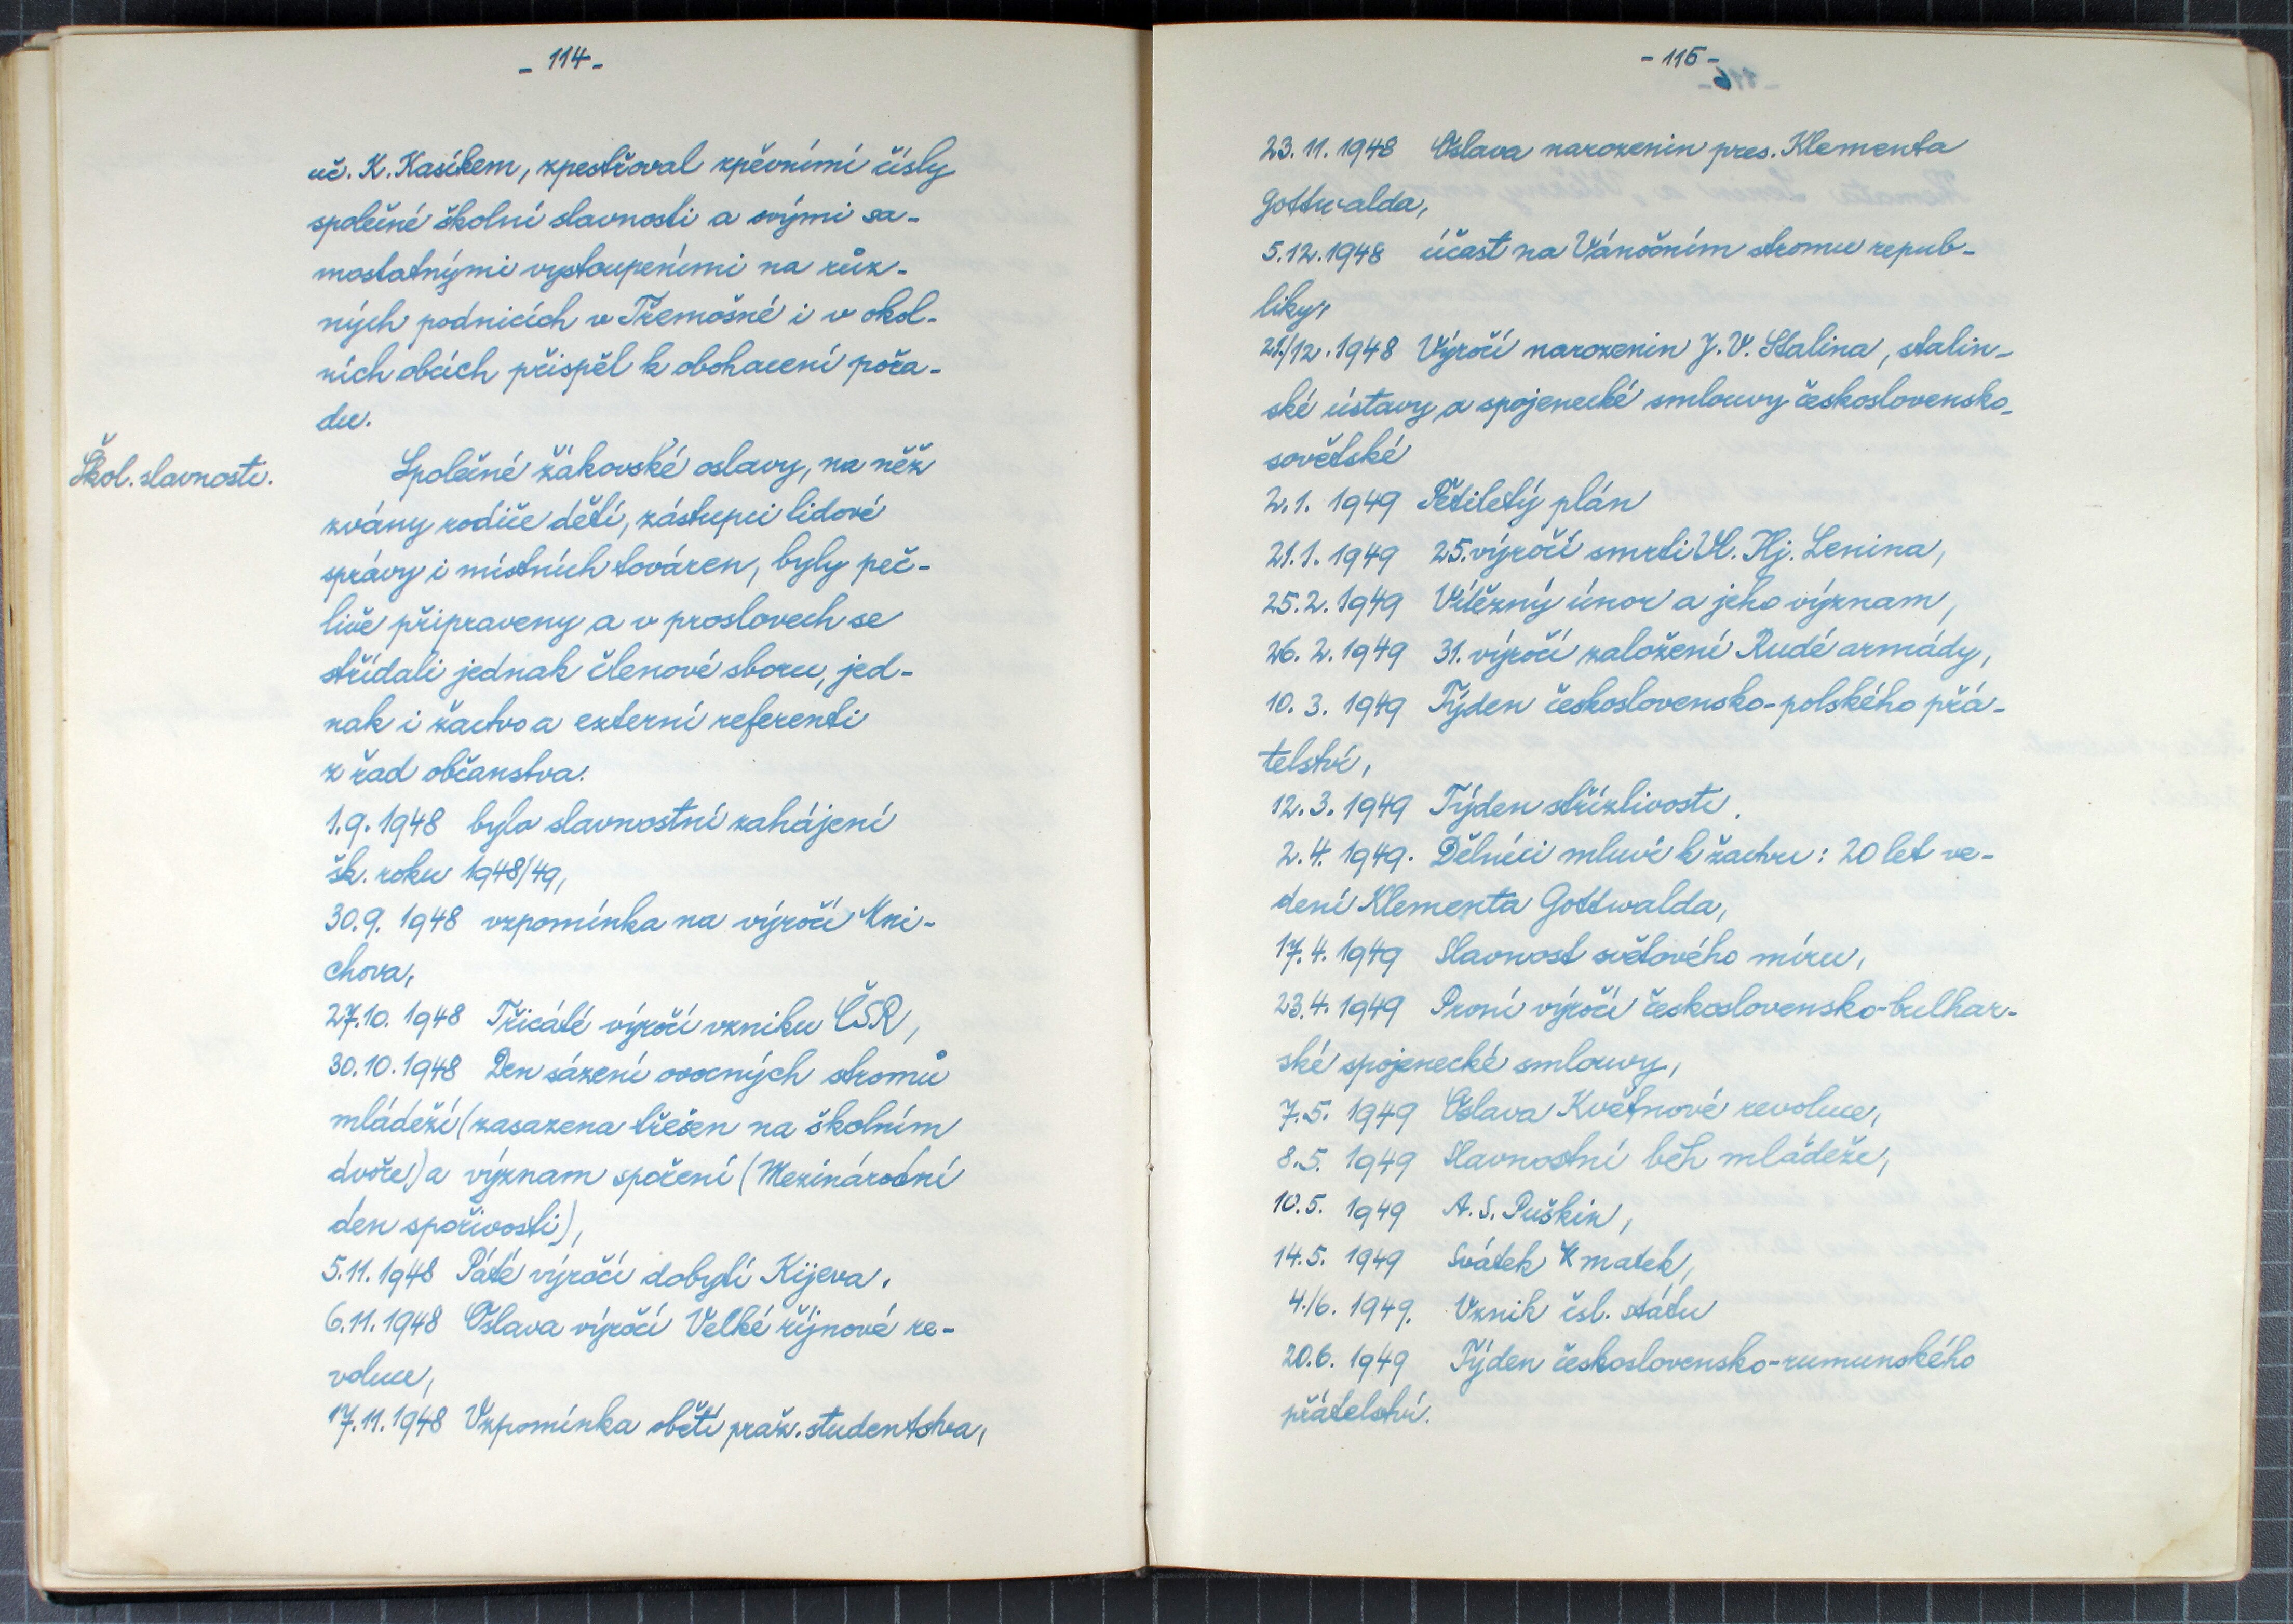 - 114 -
uč. K. Kasíkem, zpestřoval zpěvními čísly
společné školní slavnosti a svými sa-
mostatnými vystoupeními na růz-
ných podnicích v Třemošné i v okol-
ních obcích přispěl k obohacení pořa-
du.
Škol. slavnosti.
Společné žákovské oslavy, na něž
zvány rodiče dětí, zástupci lidové
správy i místních továren, byly peč-
livě připraveny a v proslovech se
střídali jednak členové sboru, jed-
nak i žactvo a externí referenti
z řad občanstva.
1.9.1948 bylo slavnostní zahájení
šk. roku 1948/49,
30.9. 1948 vzpomínka na výročí Mni-
chova,
27.10. 1948 Třicáté výročí vzniku ČSR,
30.10.1948 Den sázení ovocných stromů
mládeží (zasazena třešen na školním
dvoře) a význam spoření (Mezinárodní
den spořivosti),
5.11.1948 Páté výročí dobytí Kijeva.
6.11.1948 Oslava výročí Velké říjnové re-
voluce,
17.11.1948 Vzpomínka obětí praž. studentstva,
- 115 -
23.11.1948 Oslava narozenin pres. Klementa
Gottwalda,
5.12.1948 účast na Vánočním stromu repub-
liky,
21./12.1948 Výročí narozenin J. V. Stalina, stalin-
ské ústavy a spojenecké smlouvy československo-
sovětské
2.1. 1949 Pětiletý plán
21.1. 1949 25. výročí smrti Vl. Hj. Lenina,
25.2. 1949 Vítězný únor a jeho význam,
26. 2. 1949 31. výročí založení Rudé armády,
10. 3. 1949 Týden československo-polského přá-
telství,
12. 3. 1949 Týden střízlivosti.
2. 4. 1949. Dělníci mluví k žactvu: 20 let ve-
dení Klementa Gottwalda,
17. 4. 1949 Slavnost světového míru,
23. 4. 1949 První výročí československo-bulhar-
ské spojenecké smlouvy,
7. 5. 1949 Oslava Květnové revoluce,
8. 5. 1949 Slavnostní běh mládeže,
10. 5. 1949 A. S. Puškin,
14. 5. 1949 Svátek matek,
4./6. 1949. Vznik čsl. státu
20.6. 1949 Týden československo-rumunského
přátelství.